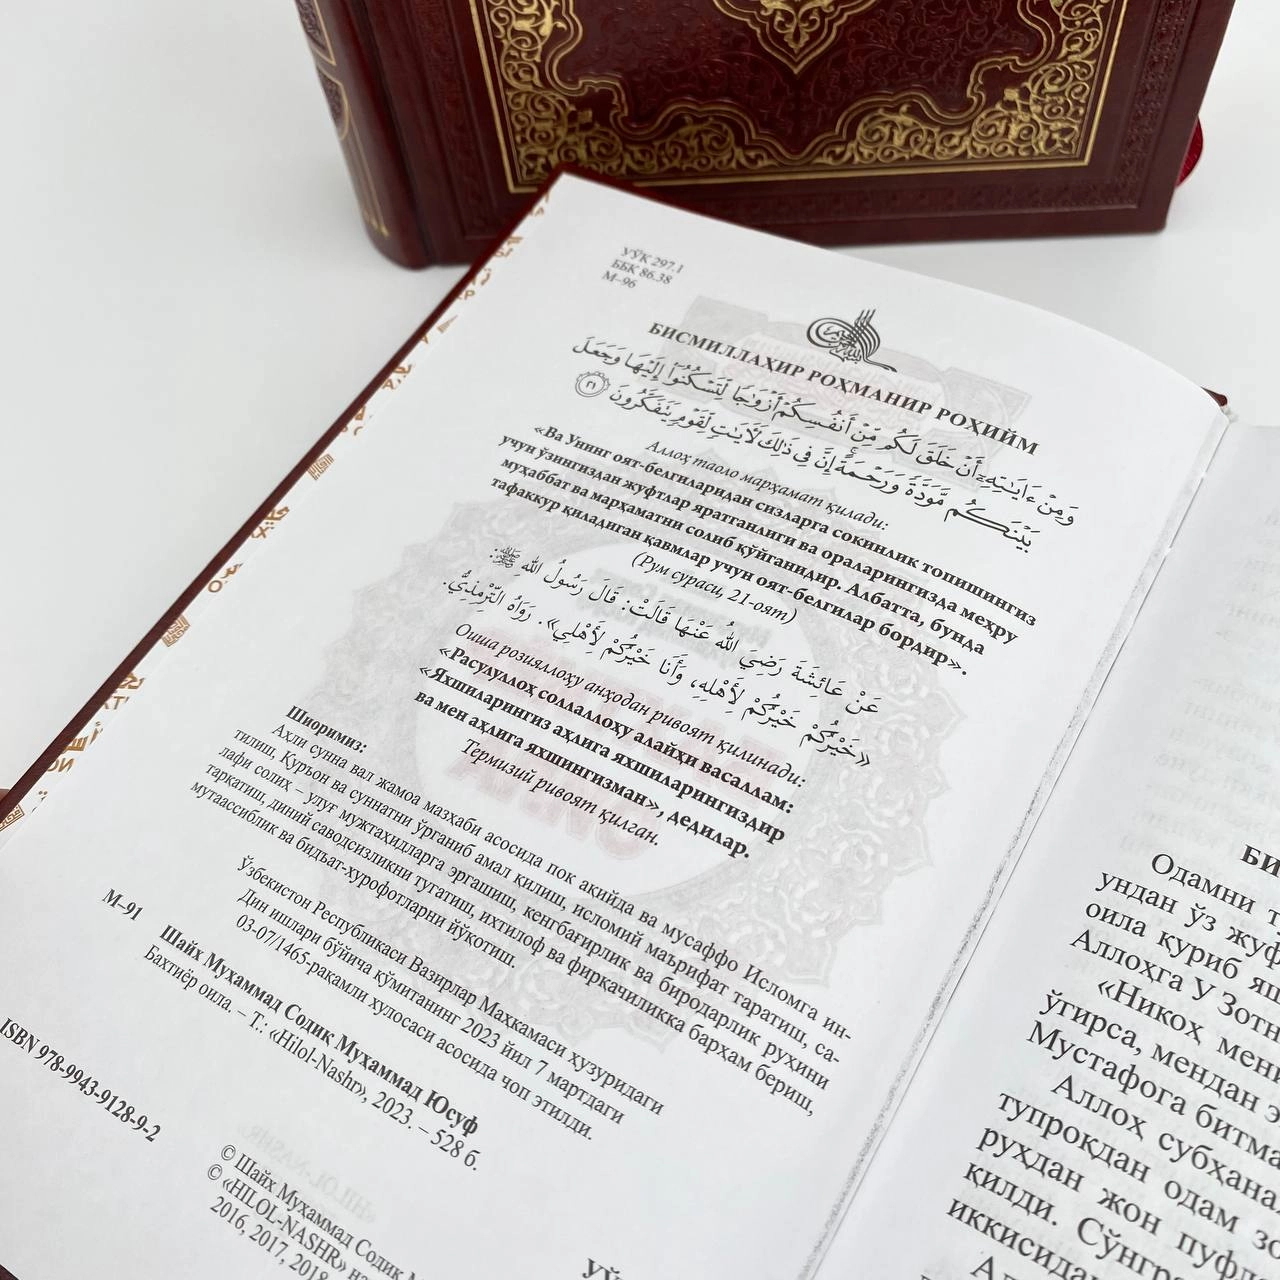 УЎК 297.1
ББК 86.38
М–96
БИСМИЛЛАҲИР РОҲМАНИР РОҲИЙМ
وَمِنْ ءَايَٰتِهِۦٓ أَنْ خَلَقَ لَكُم مِّنْ أَنفُسِكُمْ أَزْوَٰجًا لِّتَسْكُنُوٓا۟ إِلَيْهَا وَجَعَلَ
بَيْنَكُم مَّوَدَّةً وَرَحْمَةً ۚ إِنَّ فِى ذَٰلِكَ لَءَايَٰتٍ لِّقَوْمٍ يَتَفَكَّرُونَ ٢١
Аллоҳ таоло марҳамат қилади:
«Ва Унинг оят-белгиларидан сизларга сокинлик топишингиз
учун ўзингиздан жуфтлар яратганлиги ва ораларингизда меҳру
муҳаббат ва марҳаматни солиб қўйганидир. Албатта, бунда
тафаккур қиладиган қавмлар учун оят-белгилар бордир».
(Рум сураси, 21-оят)
عَنْ عَائِشَةَ رَضِيَ اللهُ عَنْهَا قَالَتْ: قَالَ رَسُولُ اللهِ ﷺ:
«خَيْرُكُمْ خَيْرُكُمْ لِأَهْلِهِ، وَأَنَا خَيْرُكُمْ لِأَهْلِي». رَوَاهُ التِّرْمِذِيُّ.
Оиша розияллоҳу анҳодан ривоят қилинади:
«Расулуллоҳ соллаллоҳу алайҳи васаллам:
«Яхшиларингиз аҳлига яхшиларингиздир
ва мен аҳлига яхшингизман», дедилар.
Термизий ривоят қилган.
Шиоримиз:
Аҳли сунна вал жамоа мазҳаби асосида пок ақийда ва мусаффо Исломга ин-
тилиш, Қуръон ва суннатни ўрганиб амал қилиш, исломий маърифат таратиш, са-
лафи солиҳ – улуғ мужтаҳидларга эргашиш, кенгбағирлик ва биродарлик руҳини
тарқатиш, диний саводсизликни тугатиш, ихтилоф ва фирқачиликка барҳам бериш,
мутаассиблик ва бидъат-хурофотларни йўқотиш.
Ўзбекистон Республикаси Вазирлар Маҳкамаси ҳузуридаги
Дин ишлари бўйича қўмитанинг 2023 йил 7 мартдаги
03-07/1465-рақамли хулосаси асосида чоп этилди.
М–91
Шайх Муҳаммад Содиқ Муҳаммад Юсуф
Бахтиёр оила. – Т.: «Hilol-Nashr», 2023. – 528 б.
ISBN 978-9943-9128-9-2
© Шайх Муҳаммад Содиқ М
© «HILOL-NASHR» на
2016, 2017, 2018
УЎ
БИ
Одамни т
ундан ўз жуф
оила қуриб яш
Аллоҳга У Зотн
«Никоҳ мени
ўгирса, мендан э
Мустафога битма
Аллоҳ субҳана
тупроқдан одам зо
руҳдан жон пуфл
қилди. Сўнгр
иккисидан